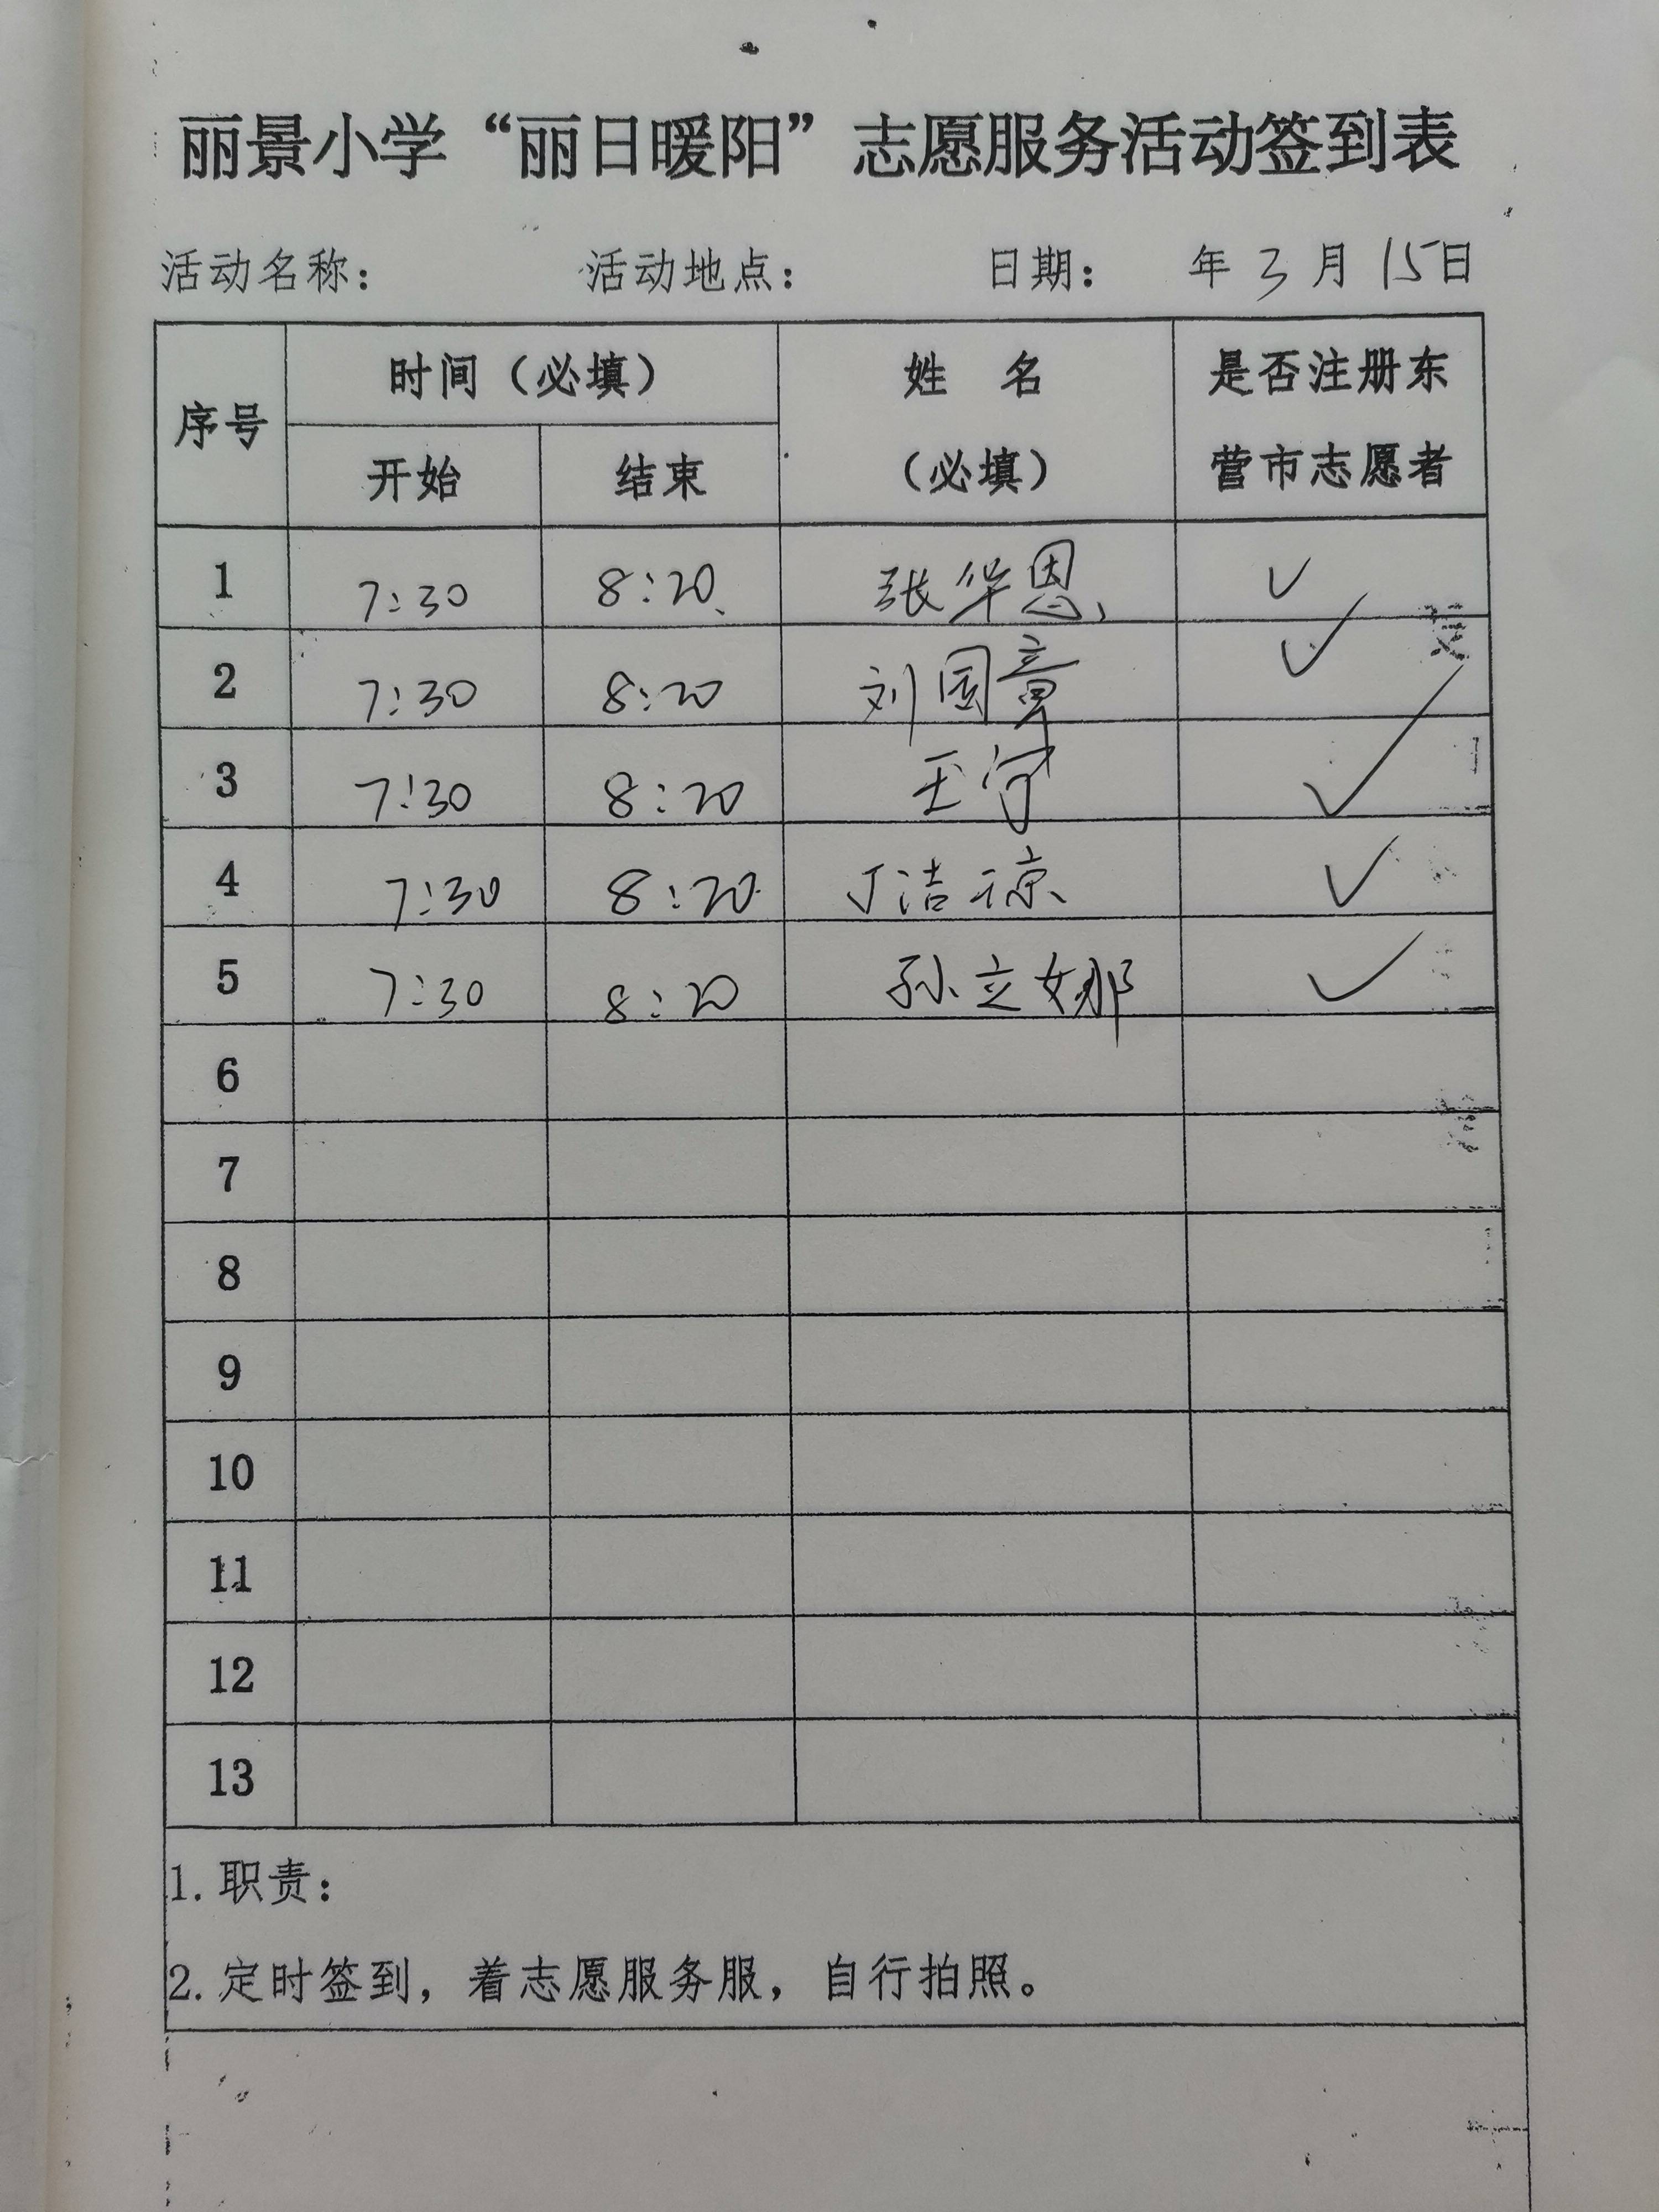 丽景小学“丽日暖阳”志愿服务活动签到表
活动名称： 活动地点： 日期： 年 3 月 15日
序号 时间（必填） 姓 名（必填） 是否注册东营市志愿者
开始 结束
1 7:30 8:20 张华恩 ✓
2 7:30 8:20 刘国章 ✓
3 7:30 8:20 王守 ✓
4 7:30 8:20 丁洁琼 ✓
5 7:30 8:20 孙立娜 ✓
6
7
8
9
10
11
12
13
1.职责：
2.定时签到，着志愿服务服，自行拍照。